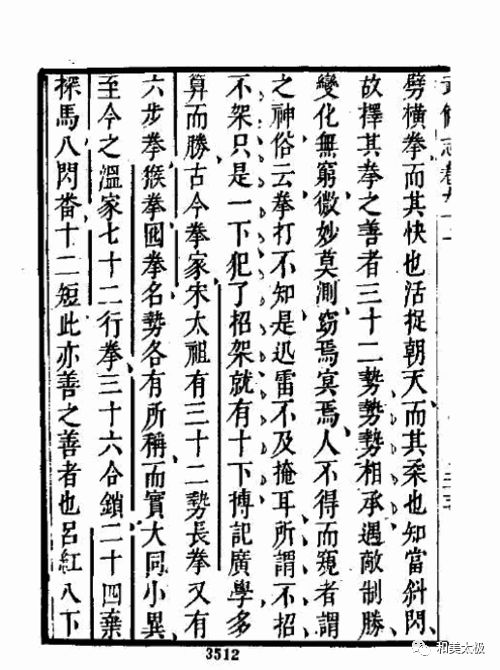 劈橫拳而其快也活捉朝天而其柔也知當斜閃
故擇其拳之善者三十二勢勢勢相承遇敵制勝
變化無窮微妙莫測窈焉冥焉人不得而窺者謂
之神俗云拳打不知是迅雷不及掩耳所謂不招
不架只是一下犯了招架就有十下博記廣學多
算而勝古今拳家宋太祖有三十二勢長拳又有
六步拳猴拳囮拳名勢各有所稱而實大同小異
至今之溫家七十二行拳三十六合鎖二十四棄
探馬八閃番十二短此亦善之善者也呂紅八下
3512
和美太极